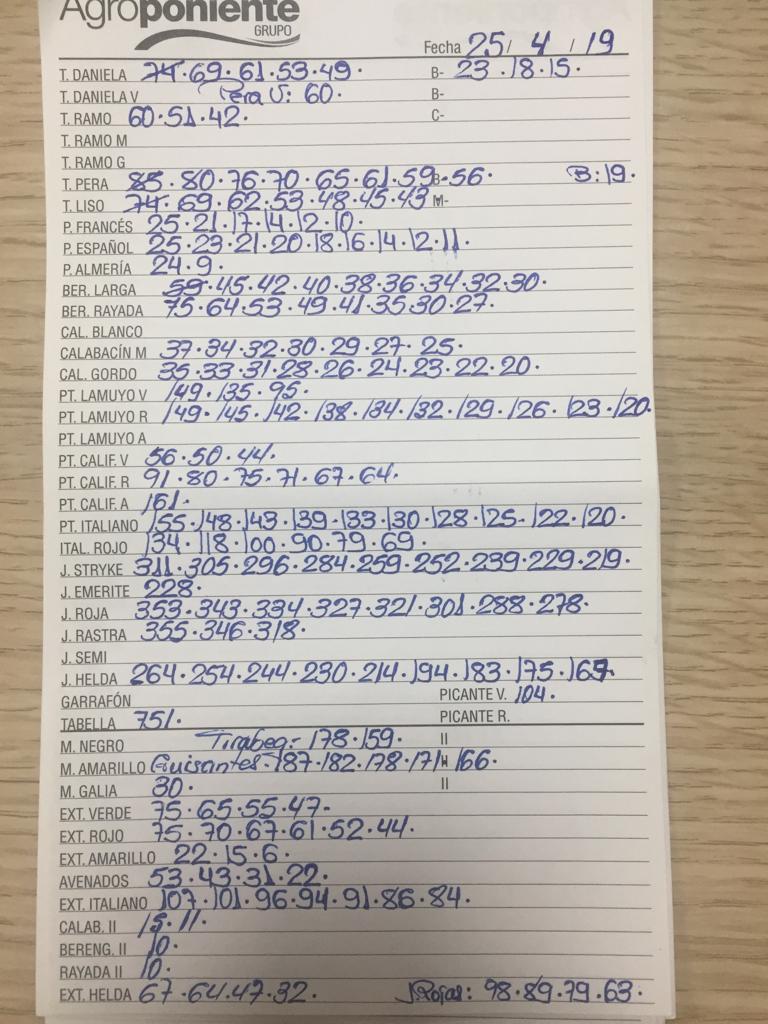 Agroponiente
GRUPO
Fecha 25/ 4 / 19
T. DANIELA 74.69.61.53.49. B- 23.18.15.
T. DANIELA V Pera V: 60. B-
T. RAMO 60.51.42. C-
T. RAMO M
T. RAMO G
T. PERA 85.80.76.70.65.61.59.56. B- B:19.
T. LISO 74.69.62.53.48.45.43 M-
P. FRANCÉS 25.21.17.14.12.10.
P. ESPAÑOL 25.23.21.20.18.16.14.12.11.
P. ALMERÍA 24.9.
BER. LARGA 59.45.42.40.38.36.34.32.30.
BER. RAYADA 75.64.53.49.41.35.30.27.
CAL. BLANCO
CALABACÍN M 37.34.32.30.29.27.25.
CAL. GORDO 35.33.31.28.26.24.23.22.20.
PT. LAMUYO V 149.135.95.
PT. LAMUYO R 149.145.142.138.134.132.129.126.123.120.
PT. LAMUYO A
PT. CALIF. V 56.50.44.
PT. CALIF. R 91.80.75.71.67.64.
PT. CALIF. A 161.
PT. ITALIANO 155.148.143.139.133.130.128.125.122.120.
ITAL. ROJO 134.118.100.90.79.69.
J. STRYKE 311.305.296.284.259.252.239.229.219.
J. EMERITE 228.
J. ROJA 353.343.334.327.321.301.288.278.
J. RASTRA 355.346.318.
J. SEMI
J. HELDA 264.254.244.230.214.194.183.175.167.
GARRAFÓN PICANTE V. 104.
TABELLA 751. PICANTE R.
M. NEGRO Tirabeq:- 178.159. II
M. AMARILLO Guisantes- 187.182.178.171.166. II
M. GALIA 30. II
EXT. VERDE 75.65.55.47.
EXT. ROJO 75.70.67.61.52.44.
EXT. AMARILLO 22.15.6.
AVENADOS 53.43.31.22.
EXT. ITALIANO 107.101.96.94.91.86.84.
CALAB. II 15.11.
BERENG. II 10.
RAYADA II 10.
EXT. HELDA 67.64.47.32. J Rojas: 98.89.79.63.